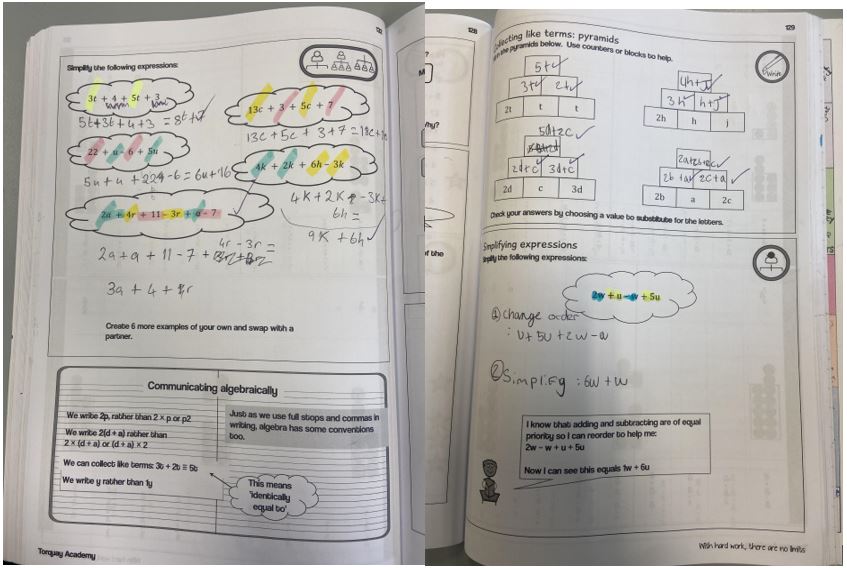 Simplify the following expressions:
3t + 4 + 5t + 3
5t+3t+4+3 = 8t+7
13c + 3 + 5c + 7
13c+5c + 3+7 =
22 + u - 6 + 5u
5u+u + 22-6 = 6u+16
4k + 2k + 6h - 3k
4K+2K - 3K+
6h =
9K + 6h
2a + 4r + 11 - 3r + a - 7
4r - 3r =
2a + a + 11 - 7 +
3a + 4 + r
Create 6 more examples of your own and swap with a
partner.
Communicating algebraically
We write 2p, rather than 2 × p or p2
We write 2(d + a) rather than
2 × (d + a) or (d + a) × 2
We can collect like terms: 3t + 2t ≡ 5t
We write y rather than 1y
Just as we use full stops and commas in
writing, algebra has some conventions
too.
This means
'identically
equal to'
Torquay Academy
128
129
Collecting like terms: pyramids
in the pyramids below. Use counters or blocks to help.
Write
5t
3t 2t
2t t t
4h+j
3h h+j
2h h j
5d+2c
2d+c 3d+c
2d c 3d
2b+a 2c+a
2b a 2c
Check your answers by choosing a value to substitute for the letters.
Simplifying expressions
Simplify the following expressions:
2w + u - w + 5u
① Change order
: u + 5u + 2w -
② Simplify : 6u + w
I know that adding and subtracting are of equal
priority so I can reorder to help me:
2w - w + u + 5u
Now I can see this equals 1w + 6u
With hard work, there are no limits